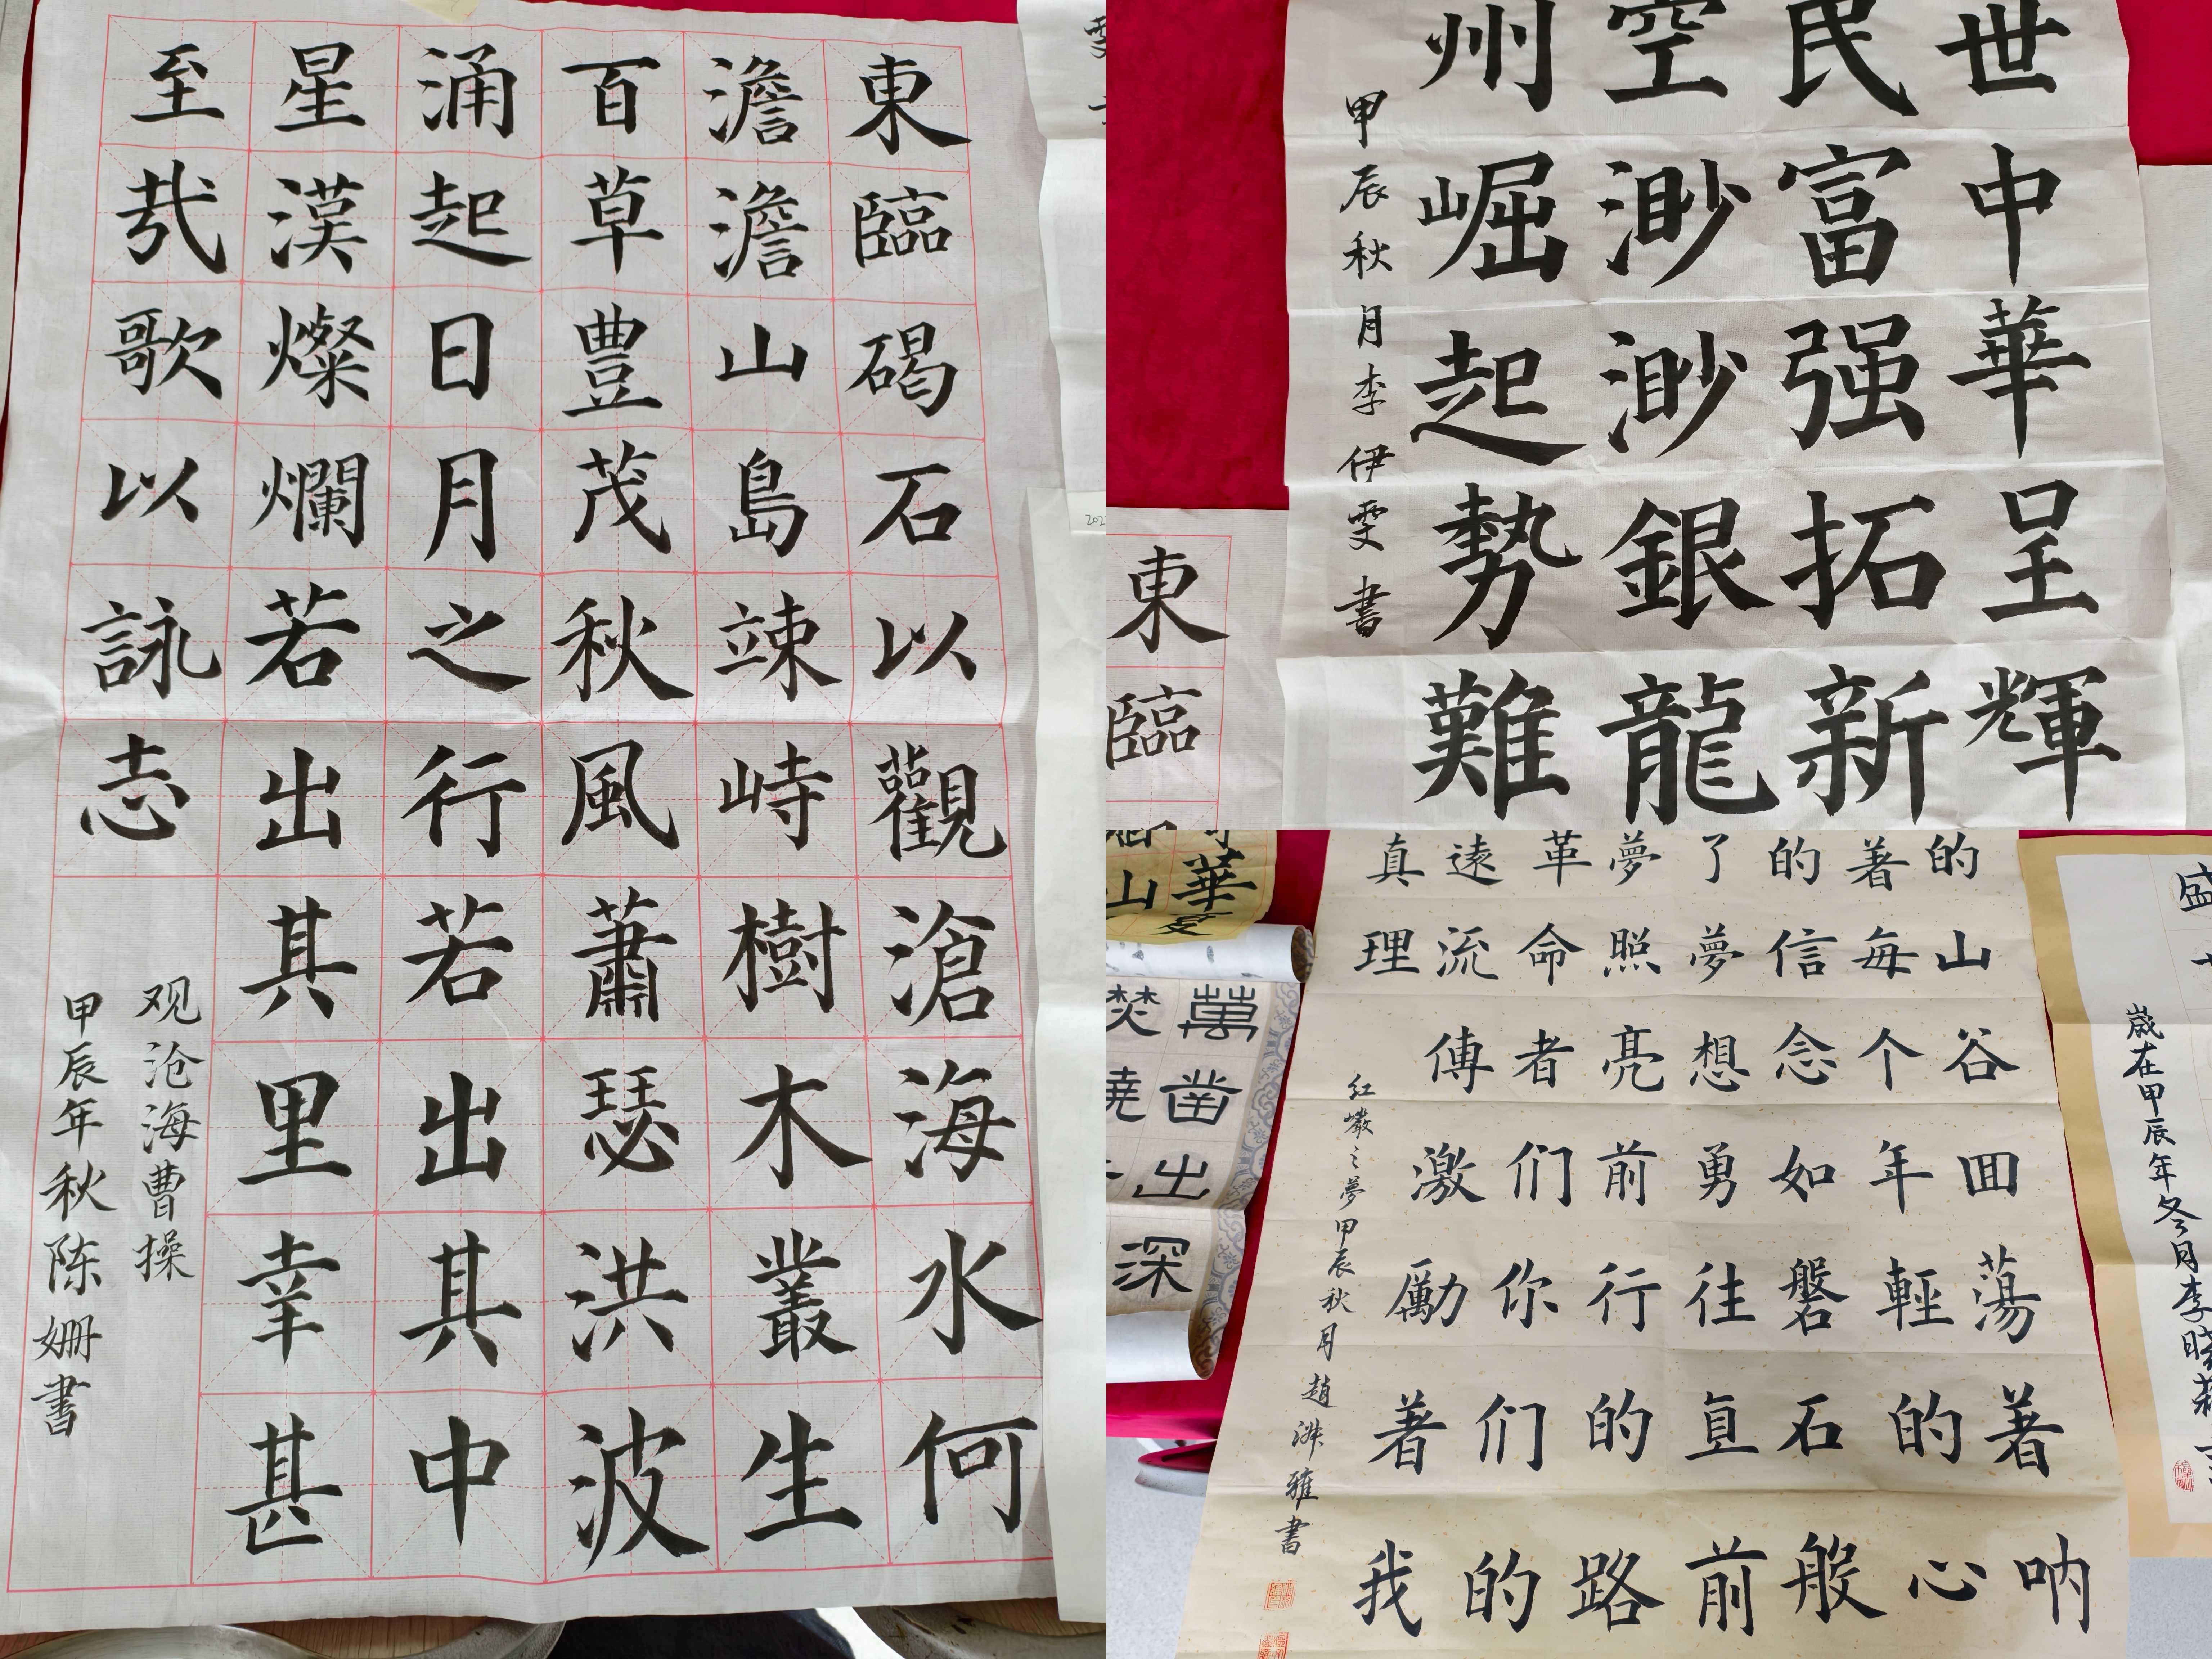 東臨碣石以觀滄海水何
澹澹山島竦峙樹木叢生
百草豊茂秋風蕭瑟洪波
涌起日月之行若出其中
星漢燦爛若出其里幸甚
至哉歌以詠志
观沧海曹操
甲辰年秋陈姗書
世中華呈輝
民富强拓新
空渺渺銀龍
州崛起勢難
甲辰秋月李伊雯書
東臨
的山谷回蕩著呐
著每个年輕的心
的信念如磐石般
了夢想勇往直前
夢照亮前行的路
革命者们你们的
遠流傳激勵著我
真理
红巖之夢甲辰秋月趙淋雅書
華
山
萬凿出深
焚
歲在甲辰年冬月李晓莉
盛